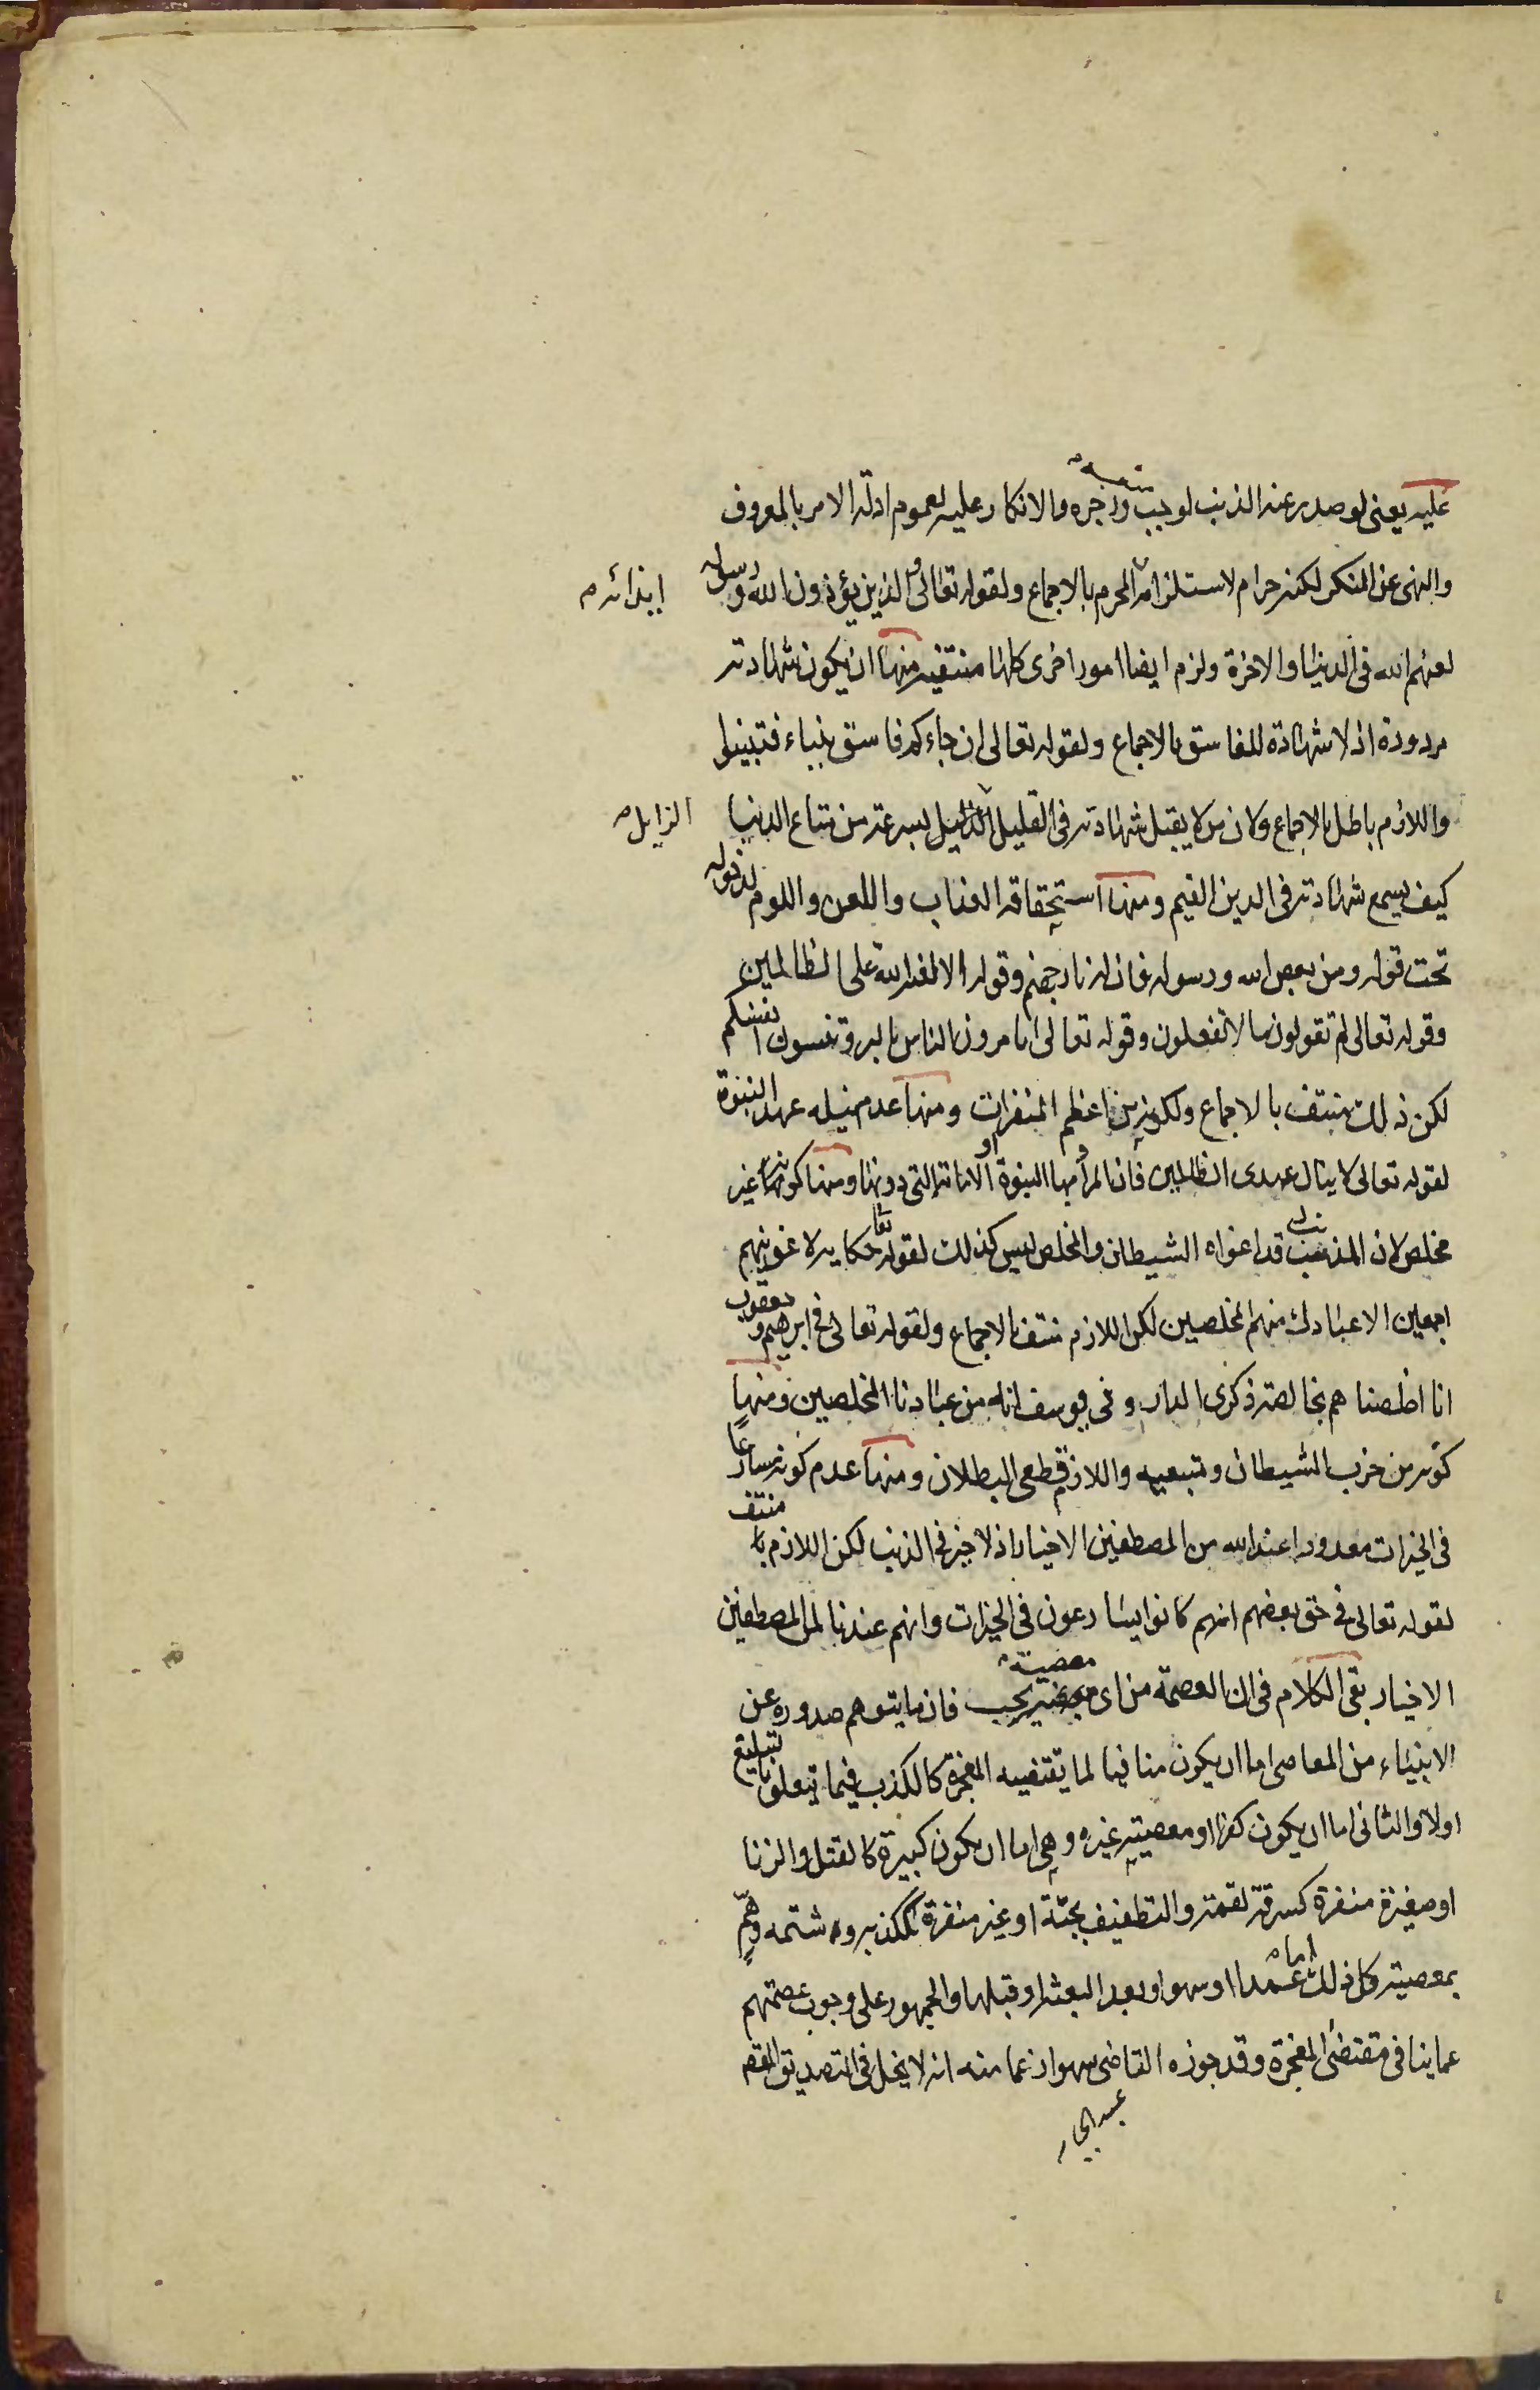 عليه يعنى لو صدر عنه الذنب لوجب منعه وزجره والانكار عليه لعموم ادلة الامر بالمعروف
والنهى عن المنكر لكنه حرام لاستلزامه المحرم بالاجماع ولقوله تعالى والذين يؤذون الله ورسوله
ايذائه م
لعنهم الله فى الدنيا والاخرة ولزم ايضا امور اخرى كلها منتفيه منها ان يكون شهادته
مردودة اذ لا شهادة للفاسق بالاجماع ولقوله تعالى ان جاءكم فاسق بنباء فتبينوا
واللازم باطل بالاجماع ولان من لا يقبل شهادته فى القليل الذايل بسرعة من متاع الدنيا
الزايل م
كيف يسمع شهادته فى الدين القيم ومنها استحقاقه العذاب واللعن واللوم لدخوله
تحت قوله ومن يعص الله ورسوله فان له نار جهنم وقوله الا لعنة الله على الظالمين
وقوله تعالى لم تقولون ما لا تفعلون وقوله تعالى اتامرون الناس بالبر وتنسون انفسكم
لكن ذلك منتف بالاجماع ولكونه من اعظم المنفرات ومنها عدم نيله عهد النبوة
لقوله تعالى لا ينال عهدى الظالمين فان المراد بها النبوة او الامامة التى دونها ومنها كونه غير
مخلص لان المذنب قد اغواه الشيطان والمخلص ليس كذلك لقوله تعا حكاية لاغوينهم
اجمعين الا عبادك منهم المخلصين لكن اللازم منتف بالاجماع ولقوله تعالى فى ابرهيم ويعقوب
انا اخلصناهم بخالصة ذكرى الدار وفى يوسف انه من عبادنا المخلصين ومنها
كونه من حزب الشيطان ومتبعيه واللازم قطعى البطلان ومنها عدم كونه مسارعا
فى الخيرات معدودا عند الله من المصطفين الاخيار اذ لا خير فى الذنب لكن اللازم منتف
لقوله تعالى فى حق بعضهم انهم كانوا يسارعون فى الخيرات وانهم عندنا لمن المصطفين
الاخيار بقى الكلام فى ان العصمة من اى معصية يجب فان ما يتوهم صدوره عن
الانبياء من المعاصى اما ان يكون منافيا لما يقتضيه المعجزة كالكذب فيما يتعلق بالتبليغ
اولا والثانى اما ان يكون كفرا او معصية غيره وهى اما ان يكون كبيرة كالقتل والزنا
او صغيرة منفرة كسرقة لقمة والتطفيف بحبة او غير منفرة ككذبة وشتمه وهم
بمعصية وكل ذلك اما عمدا او سهوا وبعد البعثة او قبلها والجمهور على وجوب عصمتهم
عما ينافى مقتضى المعجزة وقد جوزه القاضى سهوا زعما منه انه لا يخل فى التصديق المقصـ
عبد الجبار